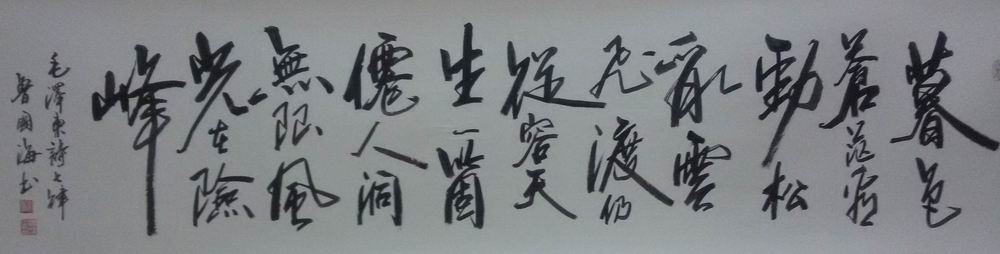 暮色
蒼茫看
勁松
亂雲
飛渡仍
從容天
生一箇
僊人洞
無限風
光在險
峰
毛澤東詩七律
國海書